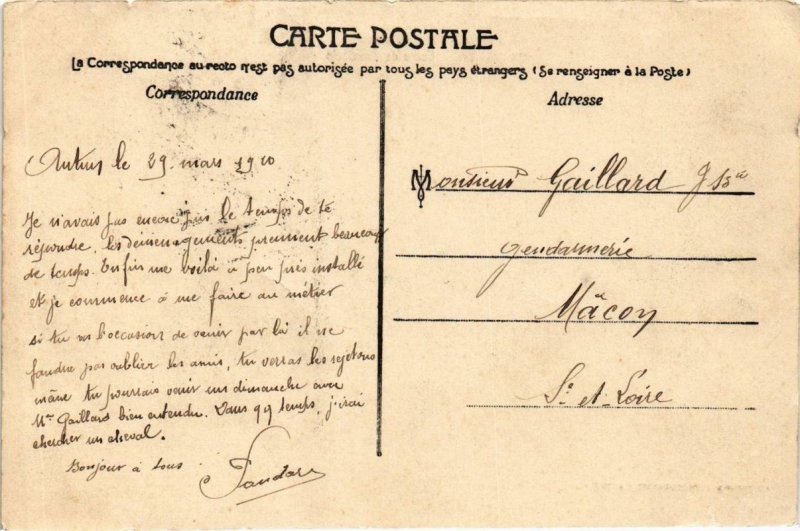 CARTE POSTALE
La Correspondance au recto n'est pas autorisée par tous les pays étrangers (Se renseigner à la Poste)
Correspondance
Adresse
Autun le 29 mars 1910
Je n'avais pas encore pris le temps de te
répondre. les déménagements prennent beaucoup
de temps. Enfin me voilà à peu près installé
et je commence à me faire au métier
si tu as l'occasion de venir par là il ne
faudra pas oublier les amis, tu verras les rejetons
même tu pourrais venir un dimanche avec
Mme Gaillard bien entendu. Dans qq temps, j'irai
chercher un cheval.
Bonjour à tous
Monsieur Gaillard
gendarmerie
Mâcon
S. et Loire